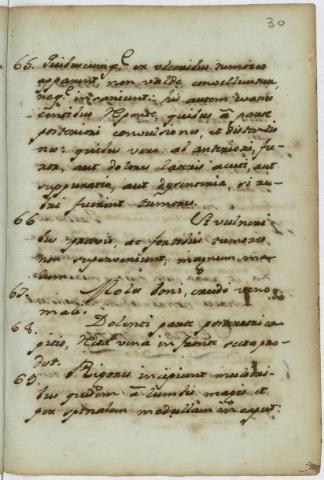 30
65. Quibuscumq. ex ulceribus tumores
apparent non valde convelluntur,
neq. insaniunt: his autem evanes
centibus repente, quibus à parte
posteriori convulsiones, et distentio
nes: quibus vero ab anteriori, fu-
ror, aut dolores lateris acuti, aut
suppuratio, aut dysenteria, si ru-
bri fuerint tumores.
66 Si vulneri
bus gravis, ac fortibus tumores
non superveniunt, magnum ma-
lum.
67. Moles boni, crudi vero
mali.
68. Dolenti parte posteriori ca
pitis, recta vena in fronte secta pro-
dest.
69. Rigores incipiunt mulieri-
bus quidem à lumbis magis, et
per spinalem medullam in caput: